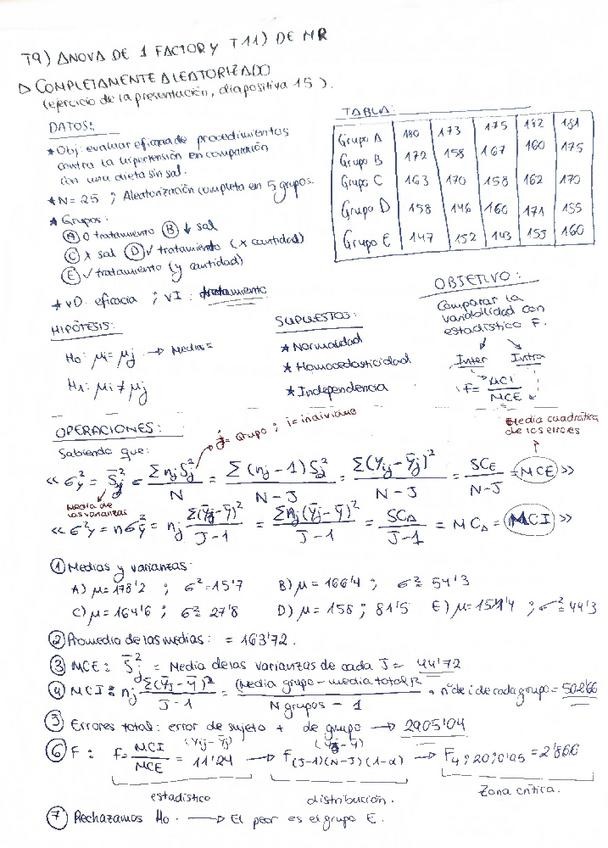 T9) ANOVA DE 1 FACTOR Y T11) DE MR
▷ COMPLETAMENTE ALEATORIZADO
(ejercicio de la presentación, diapositiva 15).
DATOS:
* Obj: evaluar eficacia de procedimientos
contra la hipertensión en comparación
con una dieta sin sal.
* N = 25 ; Aleatorización completa en 5 grupos.
* Grupos:
Ⓐ 0 tratamiento Ⓑ ↓ sal
Ⓒ x sal Ⓓ ✓ tratamiento (x cantidad)
Ⓔ ✓ tratamiento (y cantidad)
* VD: eficacia ; VI: tratamiento
TABLA:
Grupo A 180 173 175 182 181
Grupo B 172 158 167 160 175
Grupo C 163 170 158 162 170
Grupo D 158 146 160 171 155
Grupo E 147 152 143 155 160
HIPÓTESIS:
H0: μi = μj → Medias =
H1: μi ≠ μj
SUPUESTOS:
* Normalidad
* Homocedasticidad
* Independencia
OBJETIVO:
Comparar la
variabilidad con
estadístico F.
Inter Intra
F = MCI / MCE
OPERACIONES:
Sabiendo que:
j = grupo ; i = individuo
Media cuadrática
de los errores
<< σ²y = S̄²j = Σ nj S²j / N = Σ (nj - 1) S²j / N - J = Σ (Yij - Ȳj)² / N - J = SCE / N - J = MCE >>
Media de
las varianzas
<< σ²y = n σ²ȳ = nj Σ(Ȳj - Ȳ)² / J - 1 = Σ nj (Ȳj - Ȳ)² / J - 1 = SCA / J - 1 = MCA = MCI >>
① Medias y varianzas:
A) μ = 178'2 ; σ² = 15'7 B) μ = 166'4 ; σ² = 54'3
C) μ = 164'6 ; σ² = 27'8 D) μ = 158 ; 81'5 E) μ = 151'4 ; σ² = 44'3
② Promedio de las medias: = 163'72.
③ MCE = S̄²j = Media de las varianzas de cada J = 44'72
④ MCI = nj Σ(Ȳj - Ȳ)² / J - 1 = (Media grupo - media total)² / N grupos - 1 · nº de i de cada grupo = 502'86
⑤ Errores total: error de sujeto + de grupo → 2905'04
(Yij - Ȳj) (Ȳj - Ȳ)
⑥ F: F = MCI / MCE = 11'24 → F(J-1)(N-J)(1-α) → F4; 20; 0'95 = 2'866
estadístico distribución. Zona crítica.
⑦ Rechazamos H0. → El peor es el grupo E.